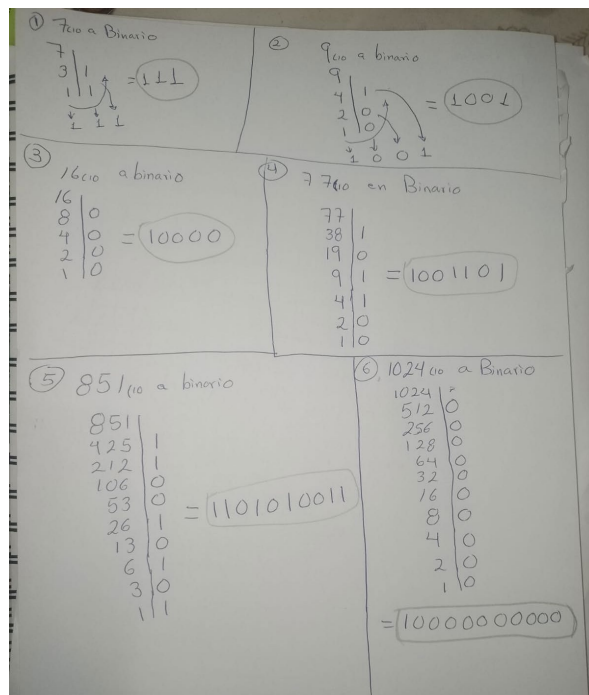 ① 7(10 a Binario
7
3 1
1 1
= 111
1 1 1
② 9(10 a binario
9
4 1
2 0
1 0
= 1001
1 0 0 1
③ 16(10 a binario
16
8 0
4 0
2 0
1 0
= 10000
④ 77(10 en Binario
77
38 1
19 0
9 1
4 1
2 0
1 0
= 1001101
⑤ 851(10 a binario
851
425 1
212 1
106 0
53 0
26 1
13 0
6 1
3 0
1 1
= 1101010011
⑥ 1024(10 a Binario
1024
512 0
256 0
128 0
64 0
32 0
16 0
8 0
4 0
2 0
1 0
= 10000000000